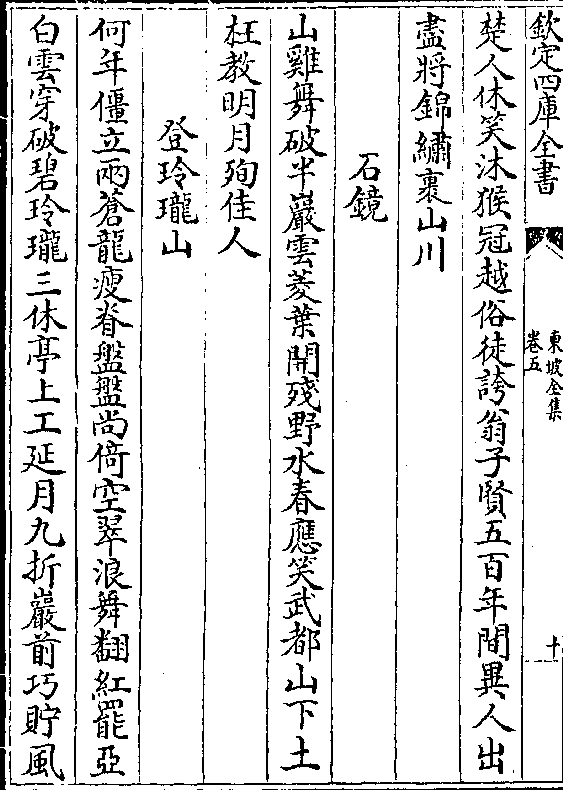 欽定四庫全書
東坡全集
卷五
十
楚人休笑沐猴冠越俗徒誇翁子賢五百年間異人出
盡將錦繡裹山川
石鏡
山雞舞破半巖雲菱葉開殘野水春應笑武都山下土
枉教明月殉佳人
登玲瓏山
何年僵立兩蒼龍瘦脊盤盤尚倚空翠浪舞翻紅罷亞
白雲穿破碧玲瓏三休亭上工延月九折巖前巧貯風